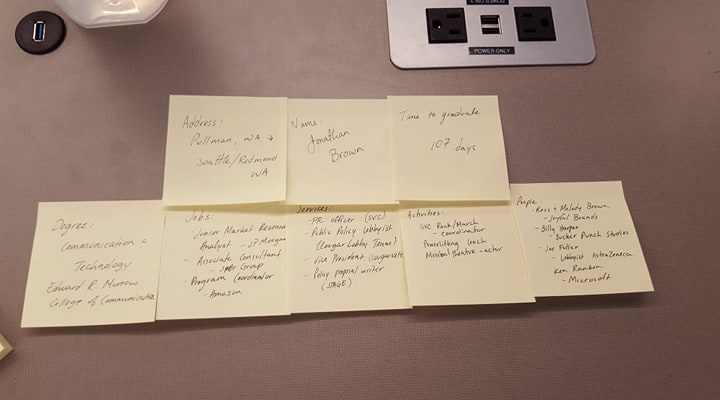 POWER ONLY
Address:
Pullman, WA →
Seattle/Redmond
WA
Name
Jonathan
Brown
Time to graduate
107 days
Degree:
Communication &
Technology
Edward R. Murrow
College of Communication
Jobs
- Junior Market Research
Analyst - JP Morgan
- Associate Consultant
- Group
- Program Coordinator
- Amazon
Services:
- PR officer (SVC)
- Public Policy Lobbyist
(Cougar Lobby Teams)
- Vice President (cougarvets)
- Policy proposal writer
(SAGE)
Activities:
Rock/March
- coordinator
Powerlifting coach
Musical Theatre - actor
People
- Ross + Melody Brown
- Joyful Brands
- Billy Harper
- Sucker Punch Studios
- Joe Fuller
- Lobbyist AstraZeneca
Ken Rankin
- Microsoft